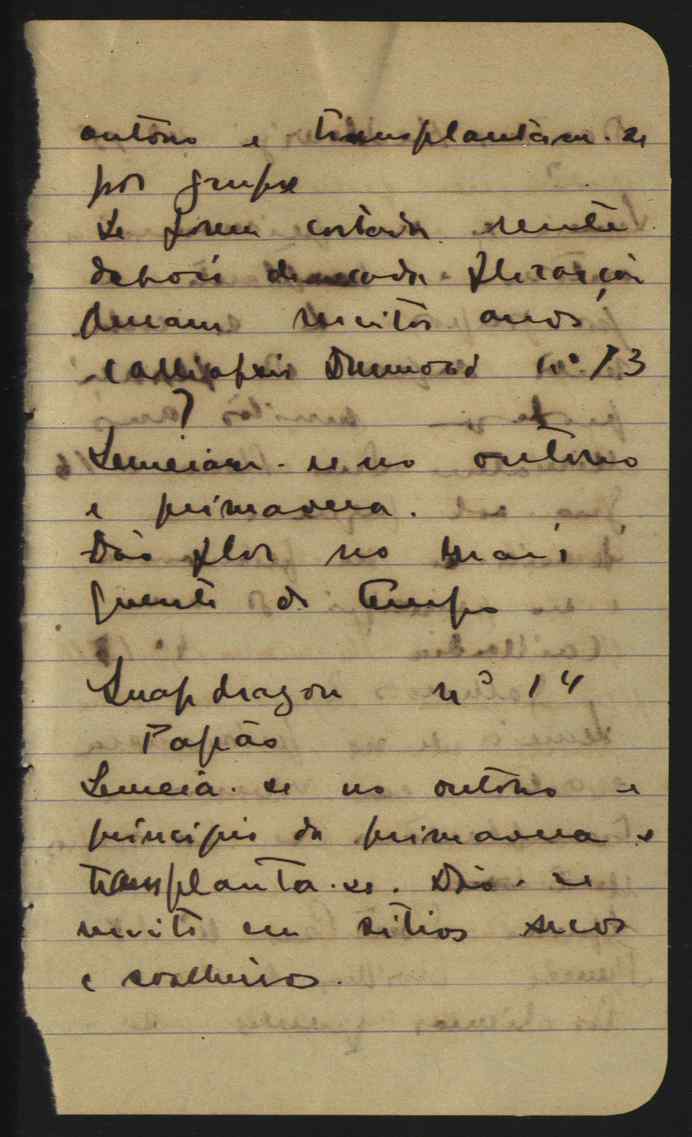 outono e transplantam-se
por grupos
Se forem cortadas rente
depois de cada floração
duram muitos anos
Calliopsis Drumond nº 13
?
Semeiam-se no outono
e primavera.
Dão flor no mais
quente do tempo
Snapdragon nº 14
Papão
Semeia-se no outono e
principio da primavera e
transplanta-se. Dão-se
muito em sitios secos
e soalheiros.